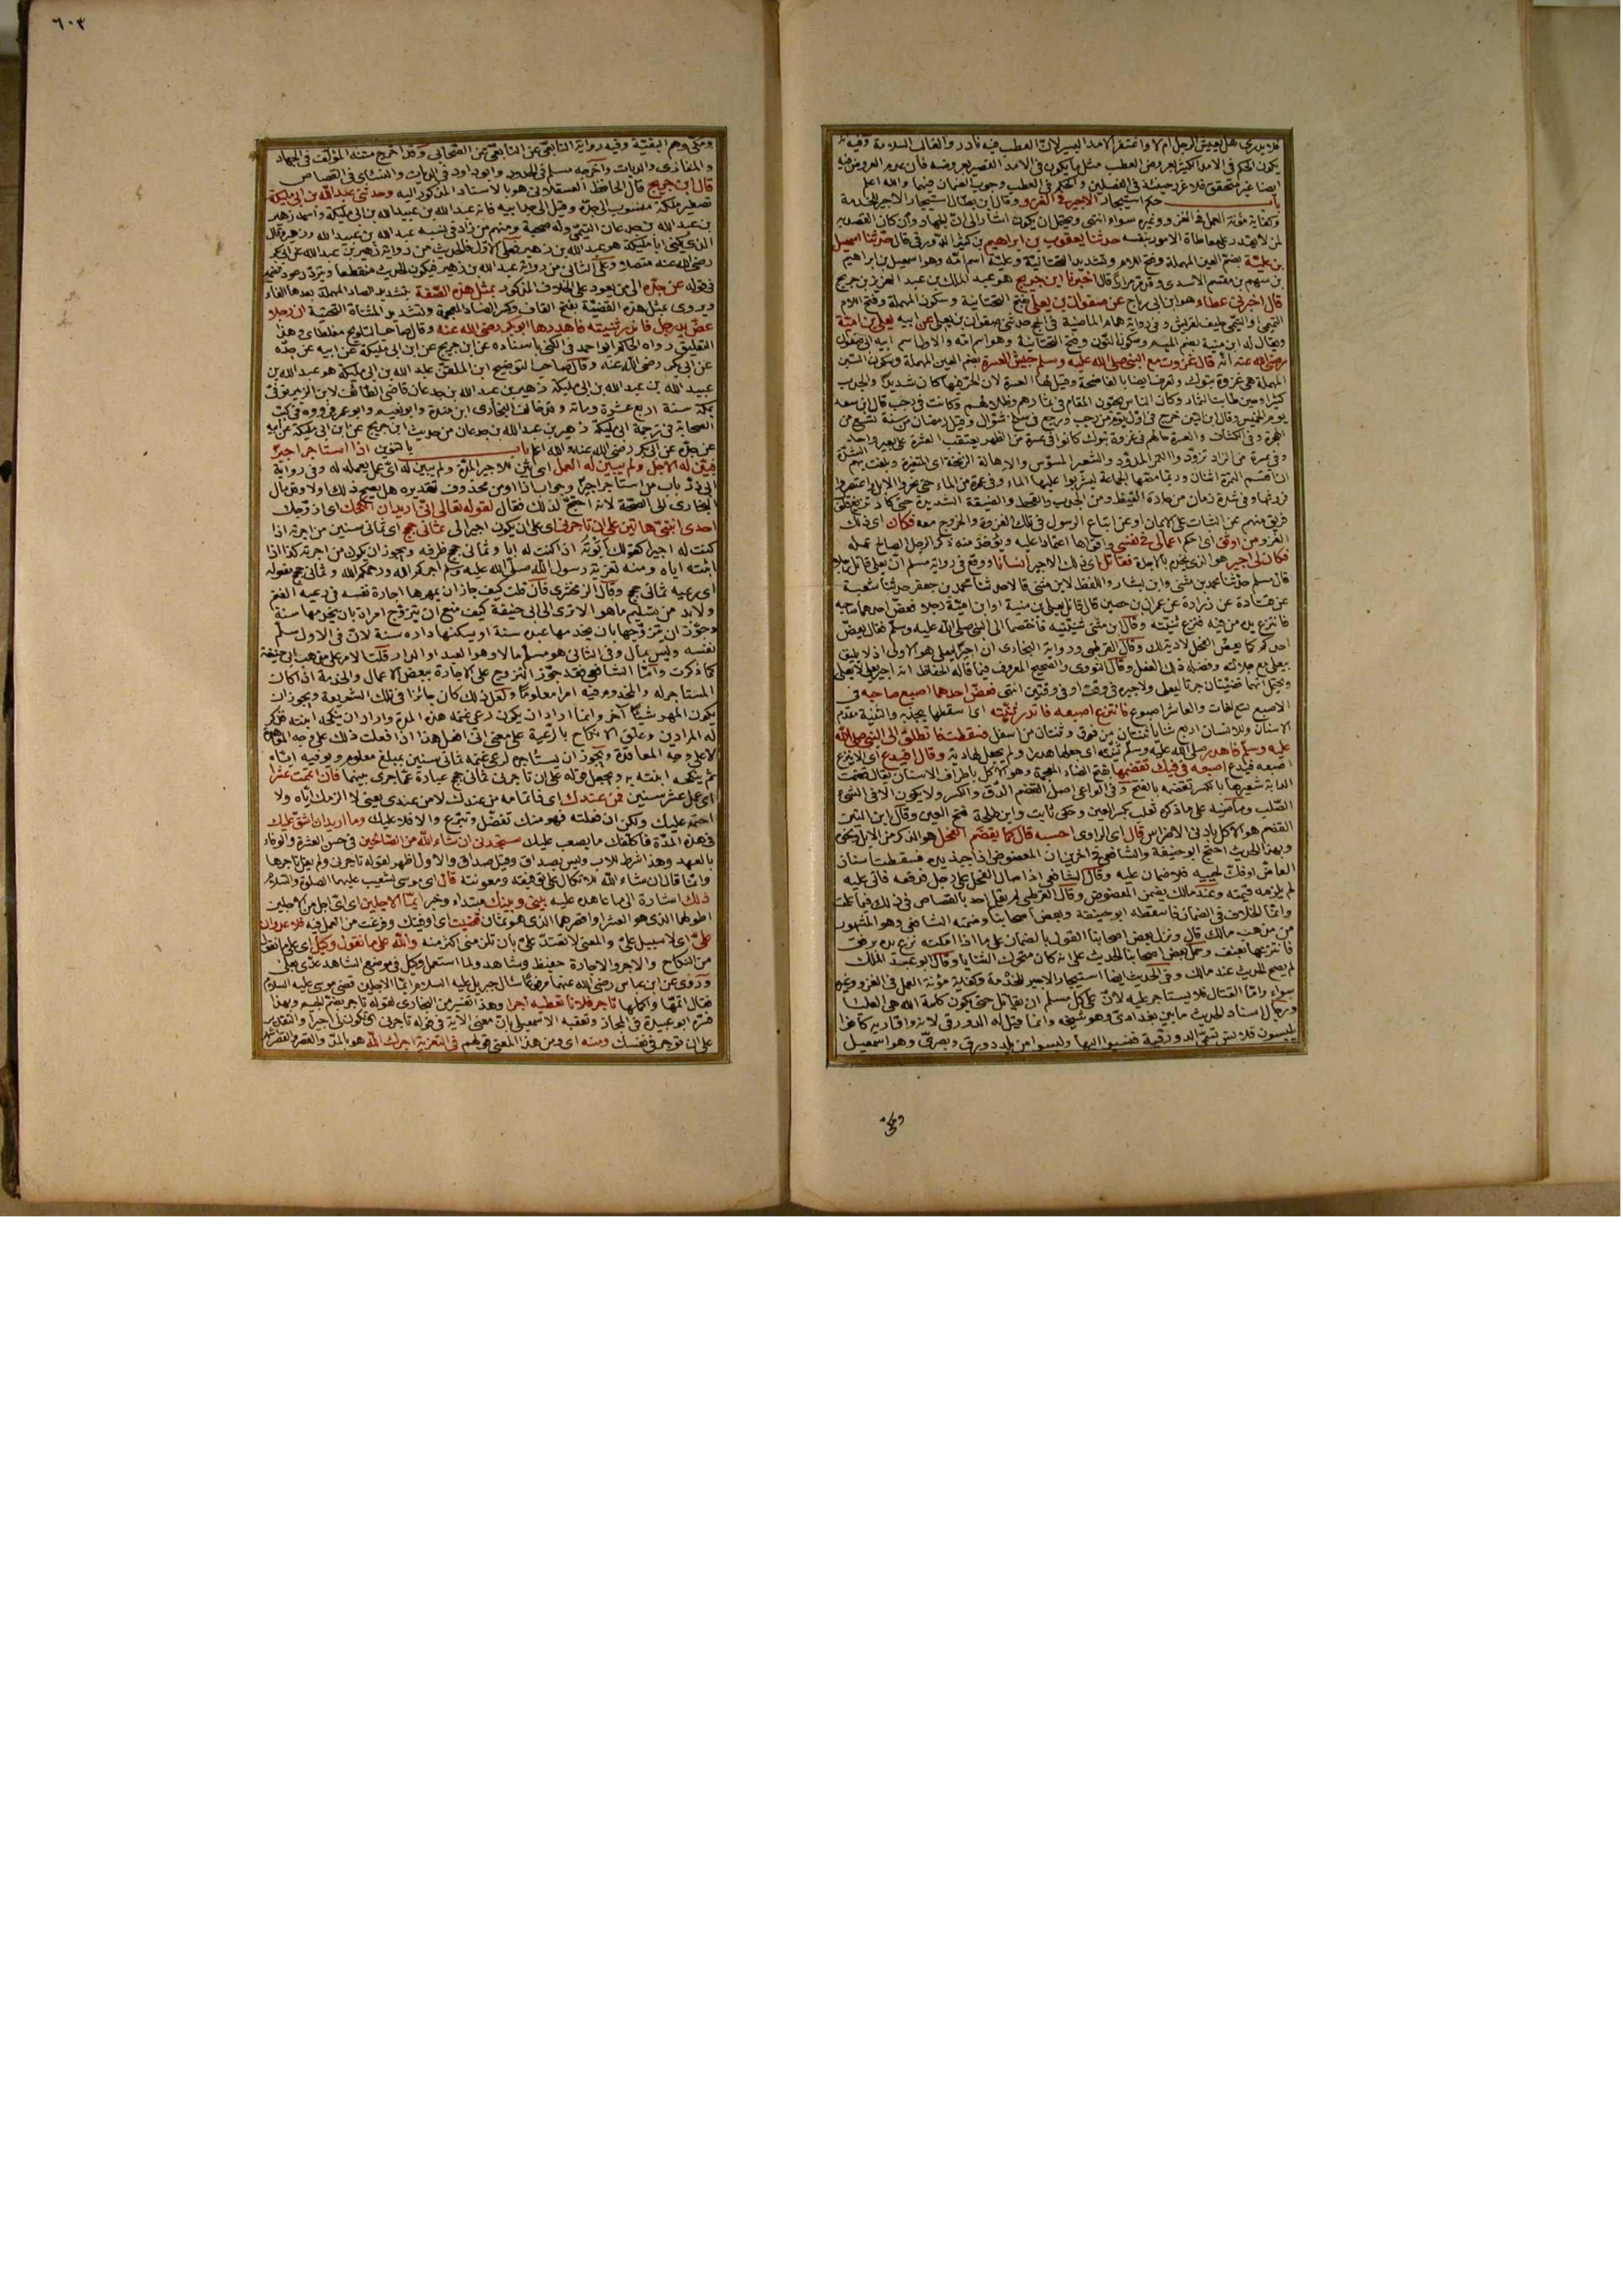 فلا يدري هل يعيش الرجل ام لا واغتفر الامد اليسير لان العطب فيه نادر والغالب السلامة وفيه
يكون الحكم في الامد الكثير العروض العطب مثل ما يكون في الامد القصير لعروضه فان عدم العروض فيه
ايضا غير متحقق فلا غرر حينئذ في الفصلين والحكم في العطب وجوب الضمان فيهما والله اعلم
باب حكم استيجار الاجير في الغزو وقال ابن بطال استيجار الاجير للخدمة
وكفاية مؤنة العمل في الغزو وغيره سواء انتهى ويحتمل ان يكون اشار الى ان الجهاد وان كان القصد به
لمن لا يقتدر على معاطاة الامور بنفسه حدثنا يعقوب بن ابراهيم بن كثير الدورقي قال حدثنا اسمعيل
بن علية بضم العين المهملة وفتح اللام وتشديد التحتانية وعلية اسم امه وهو اسمعيل بن ابراهيم
بن سهم بن مقسم الاسدي وقد مر مرارا قال اخبرنا ابن جريج هو عبد الملك بن عبد العزيز بن جريج
قال اخبرني عطاء هو ابن ابي رباح عن صفوان بن يعلى بفتح التحتانية وسكون المهملة وفتح اللام
التميمي او التيمي حليف لقريش وفي رواية همام الماضية في الحج حدثني صفوان بن يعلى عن ابيه يعلى بن امية
ويقال له ابن منية بضم الميم وسكون النون وفتح التحتانية وهو اسم امه والاول اسم ابيه ابي صفوان
رضي الله عنه انه قال غزوت مع النبي صلى الله عليه وسلم جيش العسرة بضم العين المهملة وسكون السين
المهملة هي غزوة تبوك وتعرف ايضا بالفاضحة وقيل لها العسرة لان الحر فيها كان شديدا والجدب
كثيرا وحين طابت الثمار وكان الناس يحبون المقام في ثمارهم وظلالهم وكانت في رجب قال ابن سعد
يوم الخميس وقال ابن التين خرج في اول يوم من رجب ورجع في سلخ شوال وقيل رمضان من سنة تسع من
الهجرة وفي الكشاف والعسرة حالهم في غزوة تبوك كانوا في عسرة من الظهر يعتقب العشرة على بعير واحد
وفي عسرة من الزاد تزودوا التمر المدود والشعير المسوس والاهالة الزنخة اي المتغيرة وبلغت بهم الشدة
ان اقتسم التمرة اثنان وربما مصها الجماعة ليشربوا عليها الماء وفي عسرة من الماء حتى نحروا الابل واعتصروا
فروثها وفي شدة زمان من حمارة القيظ ومن الجدب والقحط والضيقة الشديدة حتى كاد تزيغ قلوب
فريق منهم عن الثبات على الايمان او عن اتباع الرسول في تلك الغزوة والخروج معه فكان اي ذلك
الغزو من اوثق اي احكم اعمالي في نفسي واقواها اعتمادا عليه ويؤخذ منه ذكر الرجل الصالح عمله
فكان لي اجير هو الذي يخدم بالاجرة فقاتل اي ذلك الاجير انسانا ووقع في رواية مسلم ان يعلى قاتل رجلا
قال مسلم حدثنا محمد بن مثنى وابن بشار واللفظ لابن مثنى قالا حدثنا محمد بن جعفر حدثنا شعبة
عن قتادة عن زرارة عن عمران بن حصين قال قاتل يعلى بن منية او ابن امية رجلا فعض احدهما صاحبه
فانتزع يده من فيه فنزع ثنيته وقال ابن مثنى ثنيتيه فاختصما الى النبي صلى الله عليه وسلم فقال يعض
احدكم كما يعض الفحل لا دية لك وقال القرطبي ورواية البخاري ان اجيرا ليعلى هو الاولى اذ لا يليق
بيعلى مع جلالته وفضله ذلك الفعل وقال النووي والصحيح المعروف فيما قاله الحفاظ انه اجير يعلى لا يعلى
ويحتمل انهما قضيتان جرتا ليعلى ولاجيره في وقت او في وقتين انتهى فعض احدهما اصبع صاحبه في
الاصبع تسع لغات والعاشر اصبوع فانتزع اصبعه فاندر ثنيته اي اسقطها بجذبه والثنية مقدم
الاسنان وللانسان اربع ثنايا ثنتان من فوق وثنتان من اسفل فسقطت فانطلق الى النبي صلى الله
عليه وسلم فاهدر صلى الله عليه وسلم ثنيته اي جعلها هدرا ولم يجعل لها دية وقال افيدع اي الا ينزع
اصبعه فيدع اصبعه في فيك تقضمها بفتح الضاد المعجمة وهو الاكل باطراف الاسنان يقال قضمت
الدابة شعيرها بالكسر تقضمه بالفتح وفي الواعي اصل القضم الدق والكسر ولا يكون الا في الشيء
الصلب وماضيه على ما ذكره ثعلب بكسر العين وحكى ثابت وابن طلحة فتح العين وقال ابن التين
القضم هو الاكل بادنى الاضراس قال اي الراوي احسبه قال كما يقضم الفحل هو الذكر من الابل
وبهذا الحديث احتج ابو حنيفة والشافعي وآخرين ان المعضوض اذا جبذ يده فسقطت اسنان
العاض اوفك لحييه فلا ضمان عليه وقال الشافعي اذا صال الفحل على رجل فدفعه فاتى عليه
لم يلزمه قيمته وعند مالك يضمن المعضوض وقال القرطبي لم يقل احد بالقصاص في ذلك فيما علمت
وانما الخلاف في الضمان فاسقطه ابو حنيفة وبعض اصحابنا وضمنه الشافعي وهو المشهور
من مذهب مالك قال ونزل بعض اصحابنا القول بالضمان على ما اذا امكنه نزع يده برفق
فانتزعها بعنف وحمل بعض اصحابنا الحديث على انه كان متحرك الثنايا وقال ابو عبد الملك
لم يصح الحديث عند مالك وفي الحديث ايضا استيجار الاجير للخدمة وكفاية مؤنة العمل في الغزو وغيره
سواء واما القتال فلا يستاجر عليه لان على كل مسلم ان يقاتل حتى يكون كلمة الله هي العليا
ورجال اسناد الحديث ما بين بغدادي وهو شيخه وانما قيل له الدورقي لانه واقاربه كانوا
يلبسون قلانس تسمى الدورقية فنسبوا اليها وليسوا من بلد دورق وبصري وهو اسمعيل
ومكي
٦٠٣
ومكي وهم البقية وفيه رواية التابعي عن التابعي عن الصحابي وقد اخرج متنه المؤلف في الجهاد
والمغازي والديات واخرجه مسلم في الحدود وابو داود في الديات والنسائي في القصاص
قال ابن جريج قال الحافظ العسقلاني هو بالاسناد المذكور اليه وحدثني عبد الله بن ابي مليكة
تصغير ملكة منسوب الى جده وقيل الى جد ابيه فانه عبد الله بن عبيد الله بن ابي مليكة واسمه زهير
بن عبد الله بن جدعان التيمي وله صحبة ومنهم من زاد في نسبه عبد الله بن عبيد الله وزهير وقال
الذي يكنى ابا مليكة هو عبد الله بن زهير فعلى الاول فالحديث من رواية زهير بن عبد الله عن ابي بكر
رضي الله عنه متصلا وعلى الثاني من رواية عبد الله بن زهير فيكون الحديث منقطعا وتردد عود ضمير
في قوله عن جده الى من يعود على الخلاف المذكور بمثل هذه الصفة بتشديد الصاد المهملة بعدها الفاء
ويروى بمثل هذه القضية بفتح القاف وكسر الضاد المعجمة وتشديد المثناة التحتية ان رجلا
عض يد رجل فاندر ثنيته فاهدرها ابو بكر رضي الله عنه وقال صاحب التلويح مغلطاي وهذا
التعليق رواه الحاكم ابو احمد في الكنى باسناده عن ابن جريج عن ابن ابي مليكة عن ابيه عن جده
عن ابي بكر رضي الله عنه وقال صاحب التوضيح ابن الملقن عبد الله بن ابي مليكة هو عبد الله بن
عبيد الله بن عبد الله بن ابي مليكة زهير بن عبد الله بن جدعان قاضي الطائف لابن الزبير توفي
بمكة سنة اربع عشرة ومائة وقد خالف البخاري ابن مندة وابو نعيم وابو عمر فرووه في كتب
الصحابة في ترجمة ابي مليكة زهير بن عبد الله بن جدعان من حديث ابن جريج عن ابن ابي مليكة عن ابيه
عن جده عن ابي بكر رضي الله عنه والله اعلم باب بالتنوين اذا استاجر اجيرا
فبين له الاجل ولم يبين له العمل اي بين للاجير المدة ولم يبين له اي عمل يعمله له وفي رواية
ابي ذر باب من استاجر اجيرا وجواب اذا او من محذوف تقديره هل يصح ذلك اولا وقد مال
البخاري الى الصحة لانه احتج لذلك فقال لقوله تعالى اني اريد ان انكحك اي ازوجك
احدى ابنتي هاتين على ان تاجرني اي على ان يكون اجيرا لي ثماني حجج اي ثماني سنين من اجرته اذا
كنت له اجيرا كقولك ابوته اذا كنت له ابا وثماني حجج ظرفه ويجوز ان يكون من اجرته كذا اذا
اثبته اياه ومنه تعزية رسول الله صلى الله عليه وسلم اجركم الله ورحمكم الله وثماني حجج مفعوله
اي رعيه ثماني حجج وقال الزمخشري فان قلت كيف جاز ان يمهرها اجارة نفسه في رعية الغنم
ولا بد من تسليم ما هو الا ترى الى ابي حنيفة كيف منع ان يتزوج امراة بان يخدمها سنة
وجوز ان يتزوجها بان يخدمها عبده سنة او يسكنها داره سنة لان في الاول سلم
نفسه وليس بمال وفي الثاني هو مسلم مالا وهو العبد او الدار قلت الامر على مذهب ابي حنيفة
كما ذكرت واما الشافعي فقد جوز التزوج على الاجارة ببعض الاعمال والخدمة اذا كان
المستاجر له والمخدوم فيه امرا معلوما ولعل ذلك كان جائزا في تلك الشريعة ويجوز ان
يكون المهر شيئا آخر وانما اراد ان يكون رعي غنمه هذه المدة واراد ان ينكحه ابنته فذكر
له المرادين وعلق الانكاح بالرعية على معنى اني افعل هذا اذا فعلت ذلك على وجه المعاهدة
لا على وجه المعاقدة ويجوز ان يستاجره لرعي غنمه ثماني سنين بمبلغ معلوم ويوفيه اياه
ثم ينكحه ابنته به ويجعل قوله على ان تاجرني ثماني حجج عبارة عما جرى بينهما فان اتممت عشرا
اي عمل عشر سنين فمن عندك اي فاتمامه من عندك لا من عندي يعني لا الزمك اياه ولا
احتمه عليك ولكن ان فعلته فهو منك تفضل وتبرع والا فلا عليك وما اريد ان اشق عليك
في هذه المدة فاكلفك ما يصعب عليك ستجدني ان شاء الله من الصالحين في حسن العشرة والوفاء
بالعهد وهذا شرط للاب وليس بصداق وقيل صداق والاول اظهر لقوله تاجرني ولم يقل تاجرها
وانما قال ان شاء الله للاتكال على توفيقه ومعونته قال اي موسى لشعيب عليهما الصلوة والسلام
ذلك اشارة الى ما عاهده عليه بيني وبينك مبتداء وخبر ايما الاجلين اي اي اجل من الاجلين
اطولهما الذي هو العشر او اقصرهما الذي هو ثمان قضيت اي اوفيتك وفرغت من العمل فيه فلا عدوان
علي اي لا سبيل علي والمعنى لا تعتد علي بان تلزمني اكثر منه والله على ما نقول وكيل اي على ما نقول
من النكاح والاجر والاجارة حفيظ وشاهد ولما استعمل وكيل في موضع الشاهد عدي بعلى
وروي عن ابن عباس رضي الله عنهما مرفوعا سال جبريل عليه السلام ايما الاجلين قضى موسى عليه السلام
فقال اتمهما واكملهما تاجر فلانا تعطيه اجرا وهذا تفسير من البخاري لقوله تاجر بضم الجيم وبهذا
فسره ابو عبيدة في المجاز وتعقبه الاسمعيلي بان معنى الآية في قوله تاجرني اي تكون لي اجيرا والتقدير
على ان تؤجرني نفسك ومنه اي ومن هذا المعنى قولهم في التعزية اجرك الله هو بالمد والقصر